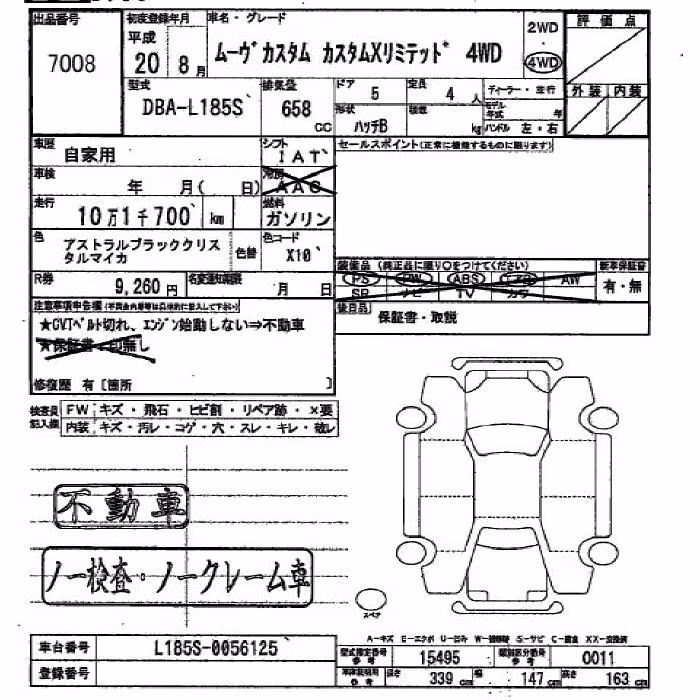 出品番号 7008
初度登録年月 平成 20 8月
車名・グレード ムーヴカスタム カスタムXリミテッド 4WD
2WD
4WD
評価点
外装 内装
型式 DBA-L185S
排気量 658 CC
ドア 5
定員 4 人
形状 ハッチB
積載 kg
ディーラー・並行
モデル年式 年
ハンドル 左・右
車歴 自家用
シフト IAT
セールスポイント(正常に機能するものに限ります)
車検 年 月( 日)
冷房 AAC
走行 10万1千700 km
燃料 ガソリン
色 アストラルブラッククリスタルマイカ
色替
色コード X10
装備品 (純正品に限り○をつけてください)
新車保証書 有・無
PS PW ABS エアB AW
SR ナビ TV カワ
R券 9,260円
名変通知期限 月 日
後日品 保証書・取説
注意事項申告欄(不具合内容等は具体的に記入して下さい)
★CVTベルト切れ、エンジン始動しない⇒不動車
★保証書:印無し
修復歴 有〔箇所 〕
検査員記入欄
FW キズ・飛石・ヒビ割・リペア跡・×要
内装 キズ・汚レ・コゲ・穴・スレ・キレ・破レ
不動車
ノー検査・ノークレーム車
スペア
A-キズ E-エクボ U-凹み W-補修跡 S-サビ C-腐食 XX-交換済
車台番号 L185S-0056125
登録番号
型式指定番号 参考 15495
類別区分番号 参考 0011
車検証明用 参考 長さ 339 cm 幅 147 cm 高さ 163 cm